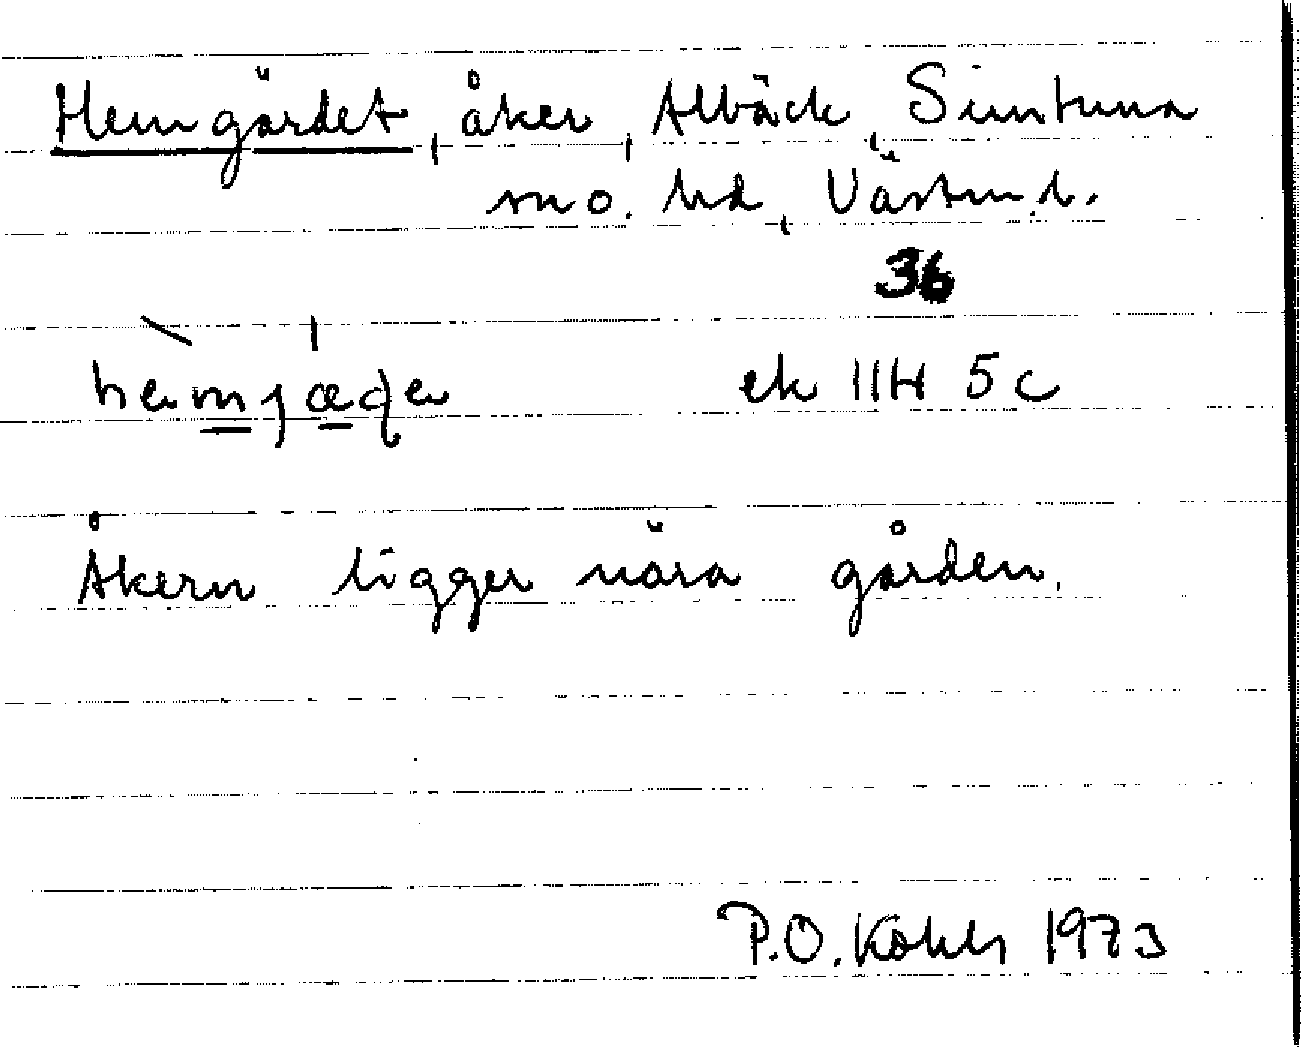 Hemgärdet, åker, Albäck, Simtuna
sn o. hd, Västm. l.
36
ek 11H 5c
Åkern ligger nära gården.
P.O. Köhls 1973